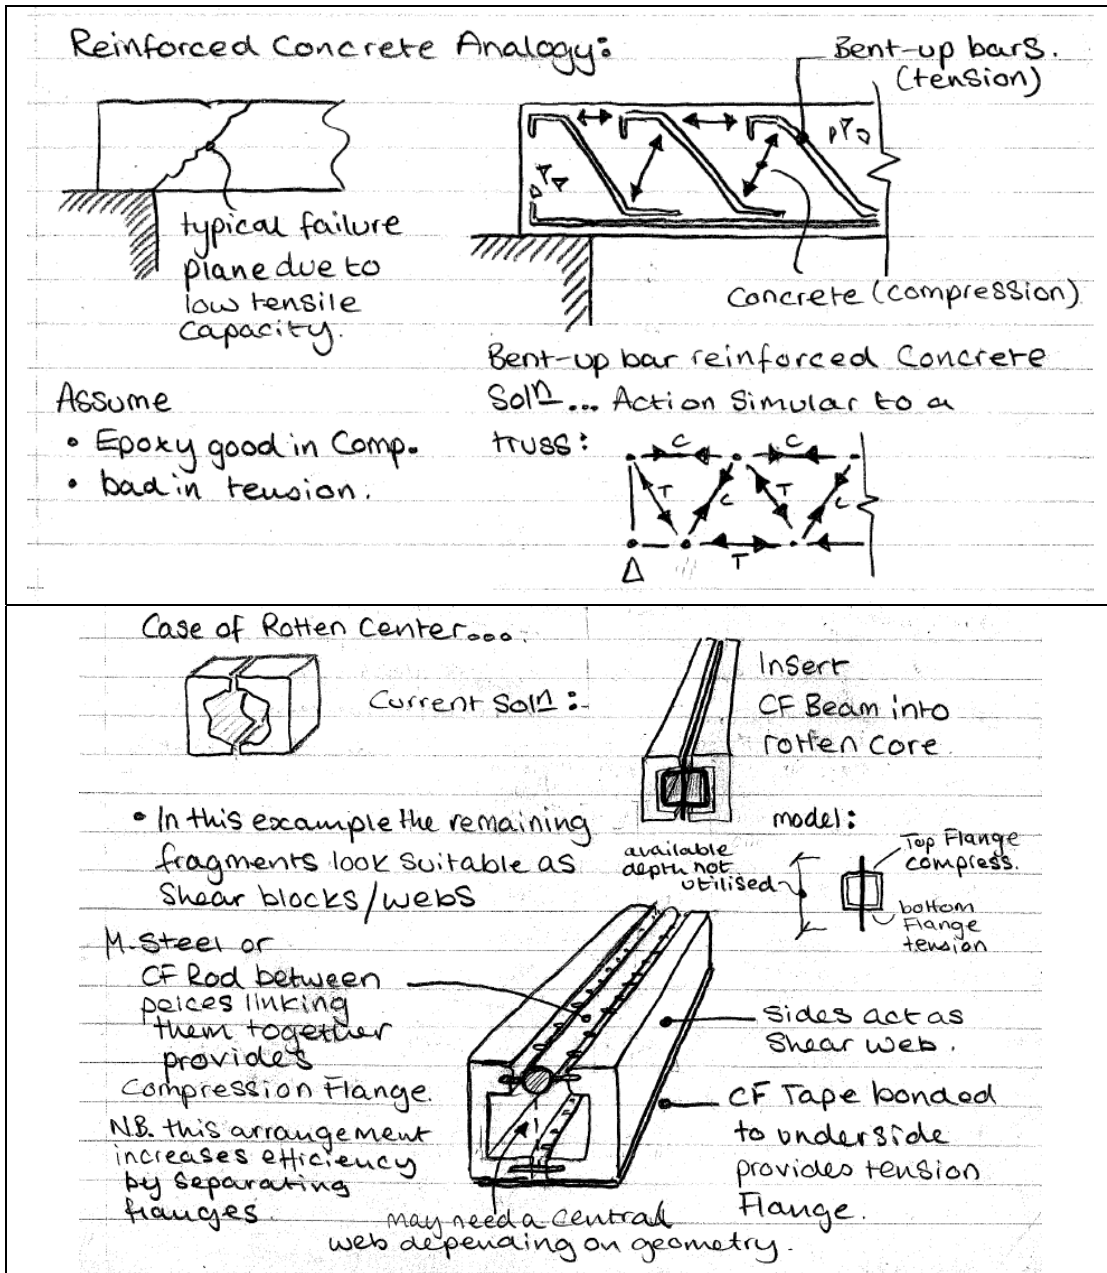 Reinforced Concrete Analogy:
Bent-up bars.
(tension)
typical failure
plane due to
low tensile
capacity.
Concrete (compression)
Assume
• Epoxy good in Comp.
• bad in tension.
Bent-up bar reinforced Concrete
Soln... Action Simular to a
truss:
C
C
T
C
T
C
T
Case of Rotten Center...
Current Soln :-
Insert
CF Beam into
rotten core.
• In this example the remaining
fragments look suitable as
Shear blocks/webs
model:
available
depth not
utilised
Top Flange
compress.
bottom
Flange
tension
M. Steel or
CF Rod between
peices linking
them together
provides
Compression Flange.
N.B. this arrangement
increases efficiency
by separating
flanges.
Sides act as
Shear web.
CF Tape bonded
to underside
provides tension
Flange.
may need a central
web depending on geometry.